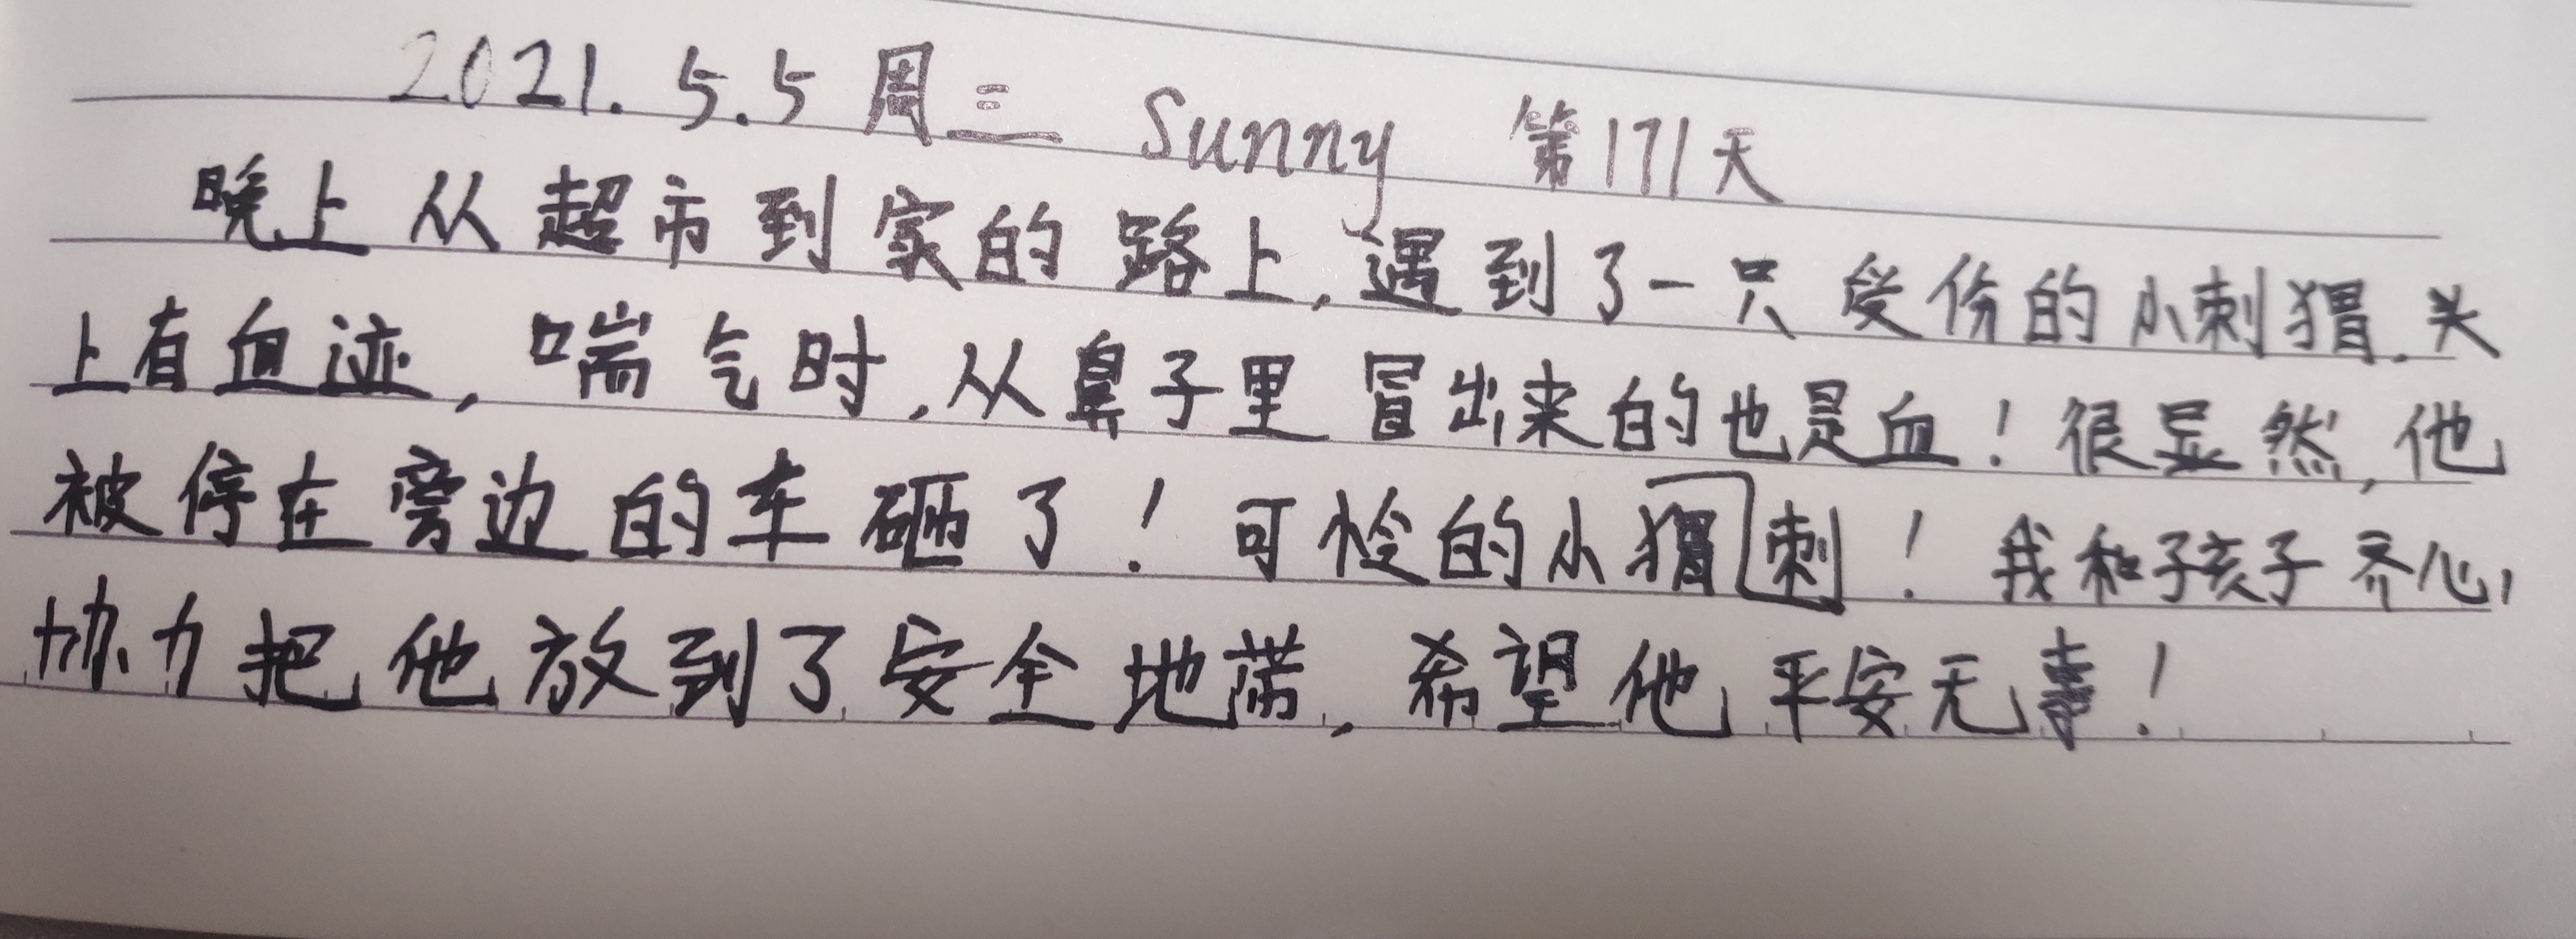 2021.5.5 周三 Sunny 第171天
晚上从超市到家的路上,遇到了一只受伤的小刺猬.头
上有血迹,喘气时,从鼻子里冒出来的也是血!很显然,他
被停在旁边的车砸了!可怜的小猬刺!我和孩子齐心,
协力把他放到了安全地带,希望他平安无事!